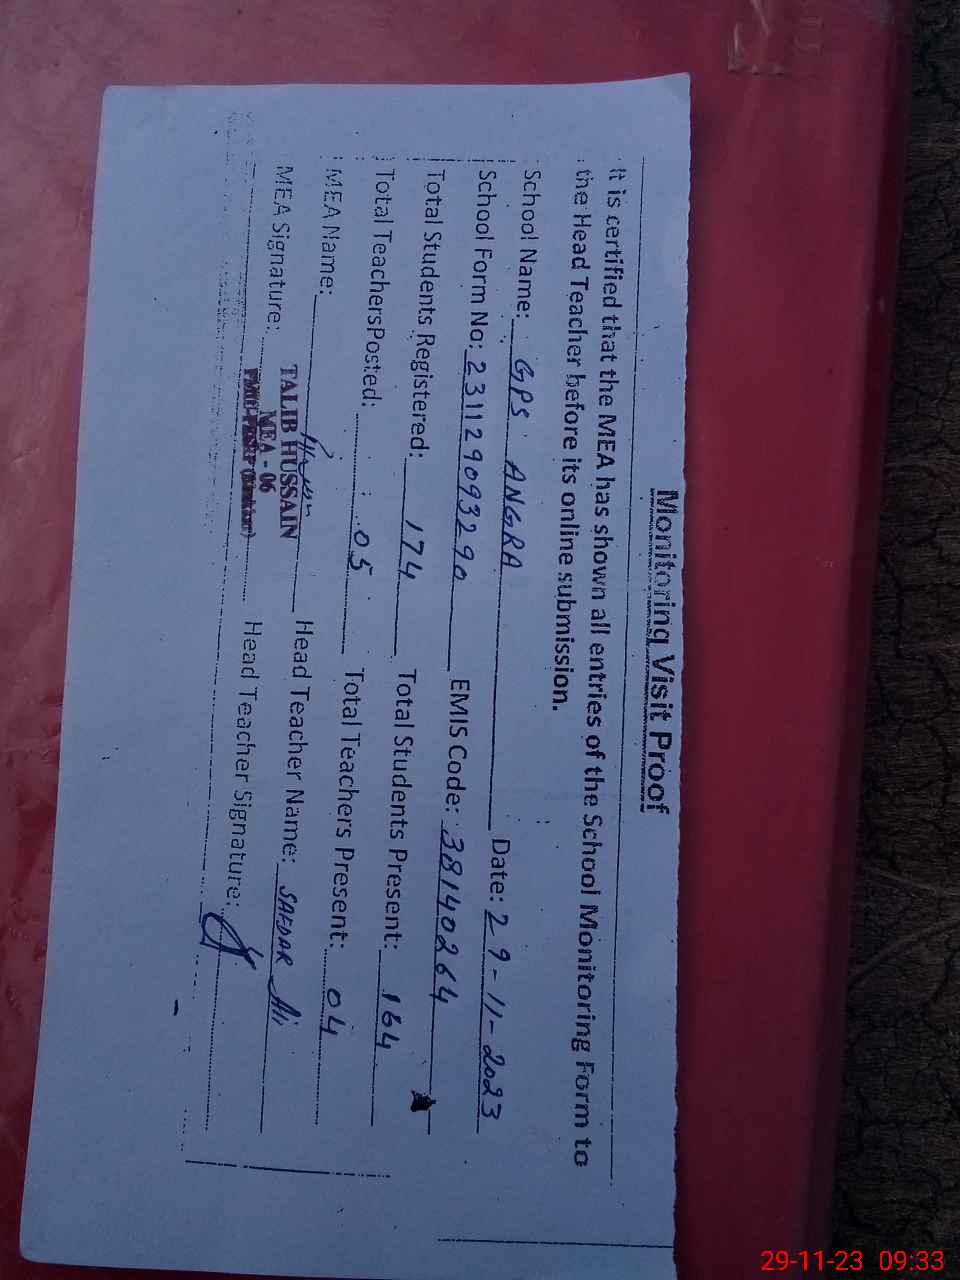 Monitoring Visit Proof
It is certified that the MEA has shown all entries of the School Monitoring Form to
the Head Teacher before its online submission.
School Name: GPS ANGRA Date: 29-11-2023
School Form No: 231129093290 EMIS Code: 38140264
Total Students Registered: 174 Total Students Present: 164
Total TeachersPosted: 05 Total Teachers Present: 04
MEA Name: Head Teacher Name: SAFDAR Ali
TALIB HUSSAIN
MEA Signature: Head Teacher Signature:
MEA - 06
29-11-23 09:33